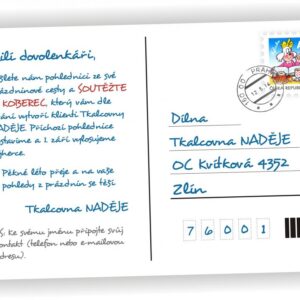 ilí dovolenkáři,
šlete nám pohlednici ze své
prázdninové cesty a SOUTĚŽTE
KOBEREC, který vám dle
ání vytvoří klienti Tkalcovny
NADĚJE. Příchozí pohlednice
stavíme a 1. září vylosujeme
ýherce.
Pěkné léto přeje a na vaše
pohledy z prázdnin se těší
Tkalcovna NADĚJE
S: Ke svému jménu připojte svůj
ontakt (telefon nebo e-mailovou
dresu).
Dílna
Tkalcovna NADĚJE
OC Kvítková 4352
Zlín
76001